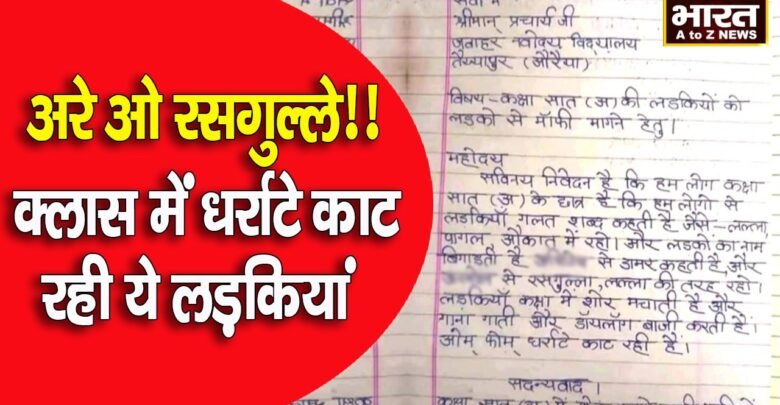 भारत
A to Z NEWS
अरे ओ रसगुल्ले!!
क्लास में धर्राटे काट
रही ये लड़कियां
श्रीमान् प्रचार्य जी
जवाहर नवोदय विद्यालय
तैय्यापुर (औरैया)
विषय-कक्षा सात (अ) की लडकियों को
लडको से मॉफी मागने हेतु।
महोदय
सविनय निवेदन है कि हम लोग कक्षा
सात (अ) के छात्र है कि हम लोगो से
लडकियाँ गलत शब्द कहती है जैसे-लल्ला,
पागल, औकात में रहो। और लडको का नाम
बिगाडती है से डामर कहती है, और
से रसगुल्ला, लल्ला की तरह रहो।
लडकियाँ कक्षा में शोर मचाती है और
गाना गाती और डॉयलॉग बाजी करती है।
ओम् फीम् धर्राटे काट रही हैं।
सदन्यवाद।